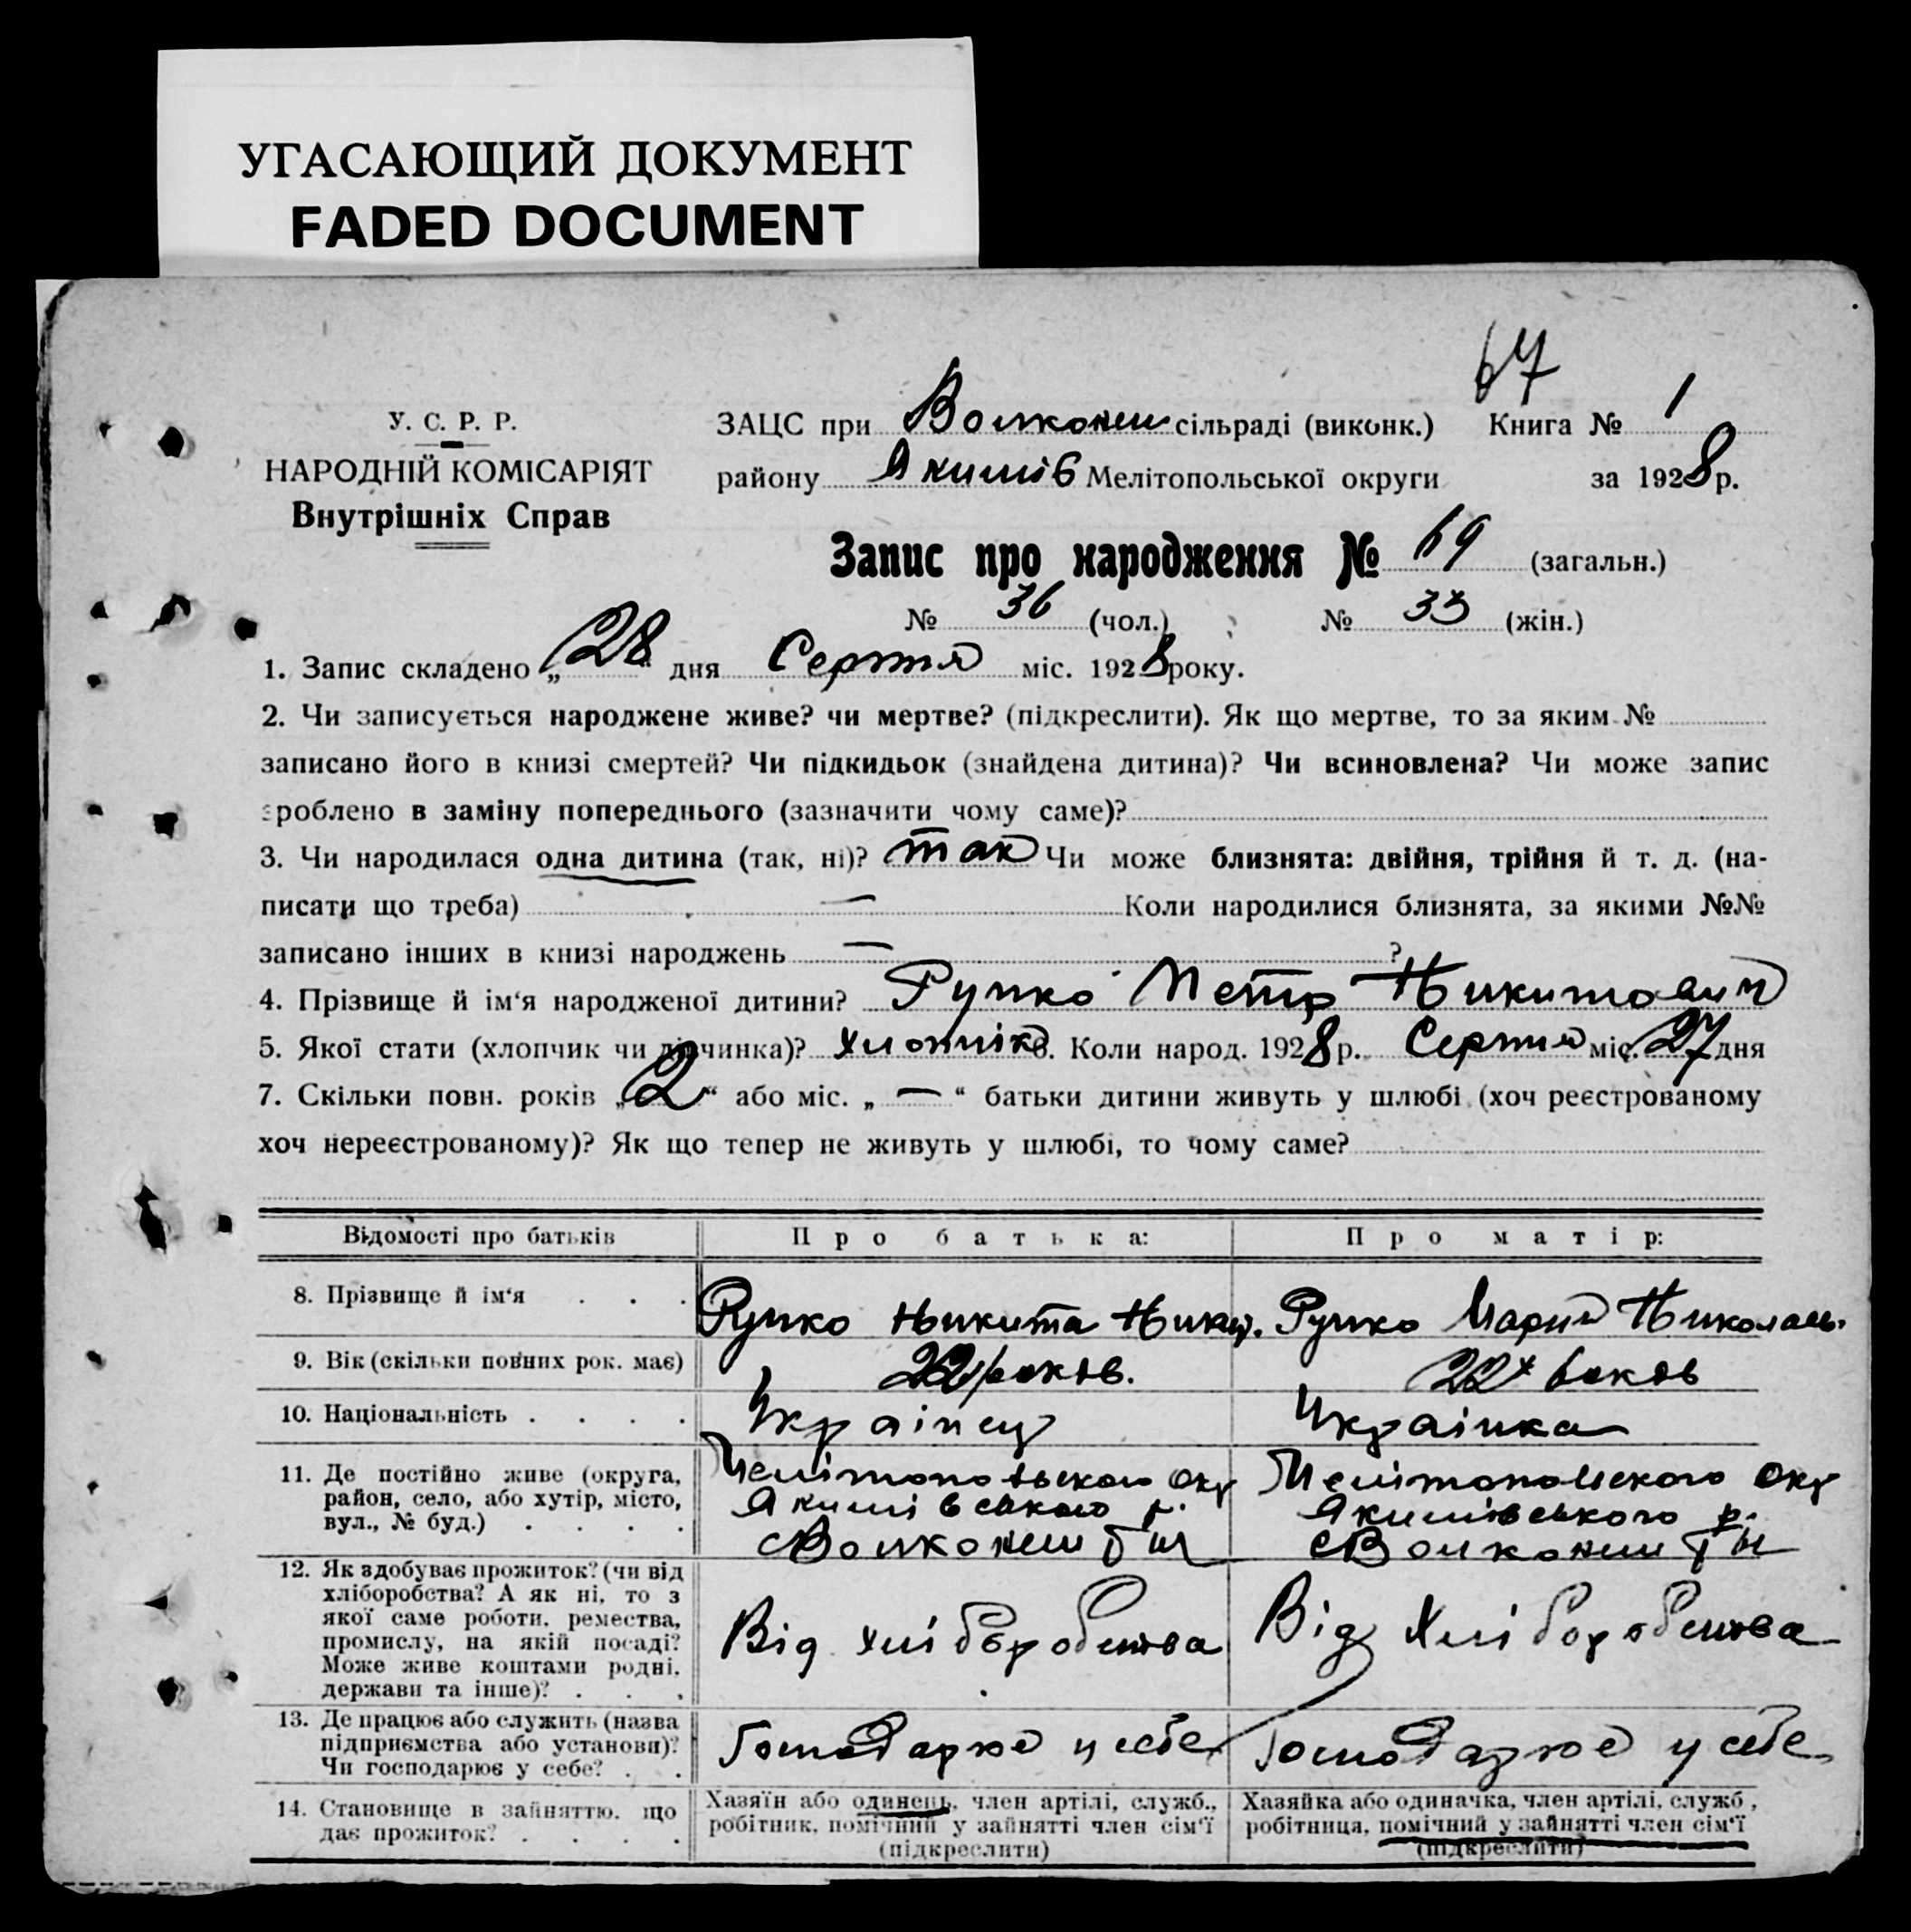 УГАСАЮЩИЙ ДОКУМЕНТ
FADED DOCUMENT
67
У. С. Р. Р.
НАРОДНІЙ КОМІСАРІЯТ
Внутрішніх Справ
ЗАЦС при Волконеш сільраді (виконк.) Книга № 1
району Якимів Мелітопольської округи за 1928 р.
Запис про народження № 69 (загальн.)
№ 36 (чол.) № 33 (жін.)
1. Запис складено „28“ дня Серпня міс. 1928 року.
2. Чи записується народжене живе? чи мертве? (підкреслити). Як що мертве, то за яким №
записано його в книзі смертей? Чи підкидьок (знайдена дитина)? Чи всиновлена? Чи може запис
зроблено в заміну попереднього (зазначити чому саме)?
3. Чи народилася одна дитина (так, ні)? так Чи може близнята: двійня, трійня й т. д. (на-
писати що треба) — Коли народилися близнята, за якими №№
записано інших в книзі народжень — ?
4. Прізвище й ім‘я народженої дитини? Рупко Петр Никитович
5. Якої стати (хлопчик чи дівчинка)? хлопчік 6. Коли народ. 1928 р. Серпня міс. 27 дня
7. Скільки повн. років „2“ або міс. „—“ батьки дитини живуть у шлюбі (хоч реєстрованому
хоч нереєстрованому)? Як що тепер не живуть у шлюбі, то чому саме?
Відомості про батьків Про батька: Про матір:
8. Прізвище й ім‘я . . . Рупко Никита Никит. Рупко Мария Николаев.
9. Вік (скільки повних рок. має) 22 роков. 22 роков
10. Національність . . . . Українец Українка
11. Де постійно живе (округа, район, село, або хутір, місто, вул., № буд.) . . . . Мелітопольского окр Якимівського р. с Волконеш Мелітопольского окр Якимівського р. с Волконеш
12. Як здобуває прожиток? (чи від хліборобства? А як ні, то з якої саме роботи, ремества, промислу, на якій посаді? Може живе коштами родні, держави та інше)? . . . Від хліборобства Від Хліборобства
13. Де працює або служить (назва підприємства або установи)? Чи господарює у себе? . . Господарює у себе Господарює у себе
14. Становище в зайняттю, що дає прожиток? . . . . Хазяїн або одинець, член артілі, служб., робітник, помічний у зайнятті член сім‘ї (підкреслити) Хазяйка або одиначка, член артілі, служб., робітниця, помічний у зайнятті член сім‘ї (підкреслити)